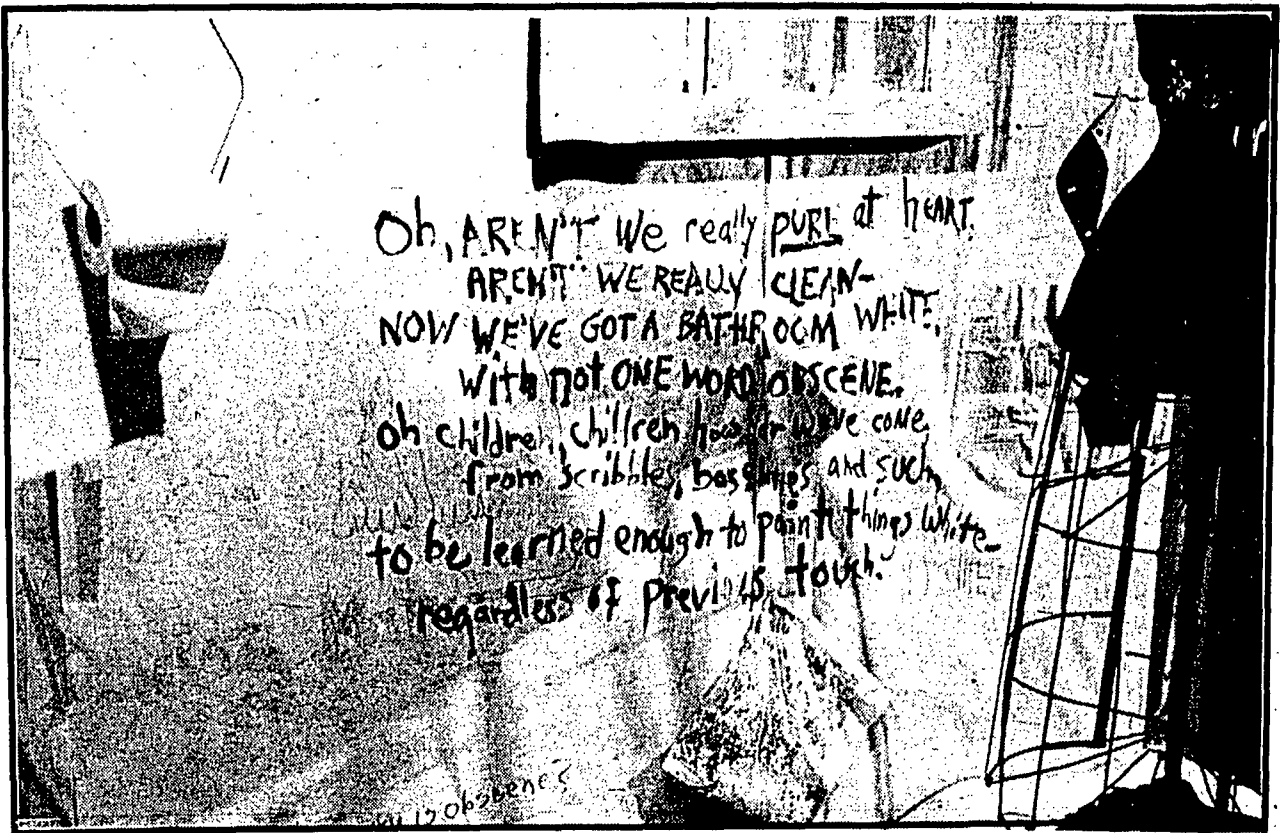 Oh, AREN'T We really PURE at hEART.
AREN'T WE REALLY CLEAN-
NOW WE'VE GOT A BATHROOM WHITE,
With not ONE WORD OBSCENE.
Oh children, children how far We've come
from scribbles, and such,
to be learned enough to paint things White-
regardless of previous touch.
obscene